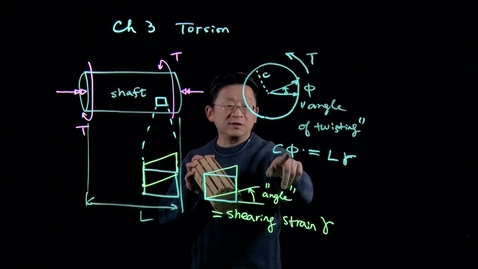 Ch 3 Torsion
T
T
shaft
c
φ
"angle
of twisting"
T
cφ = Lγ
"angle"
= shearing strain γ
L